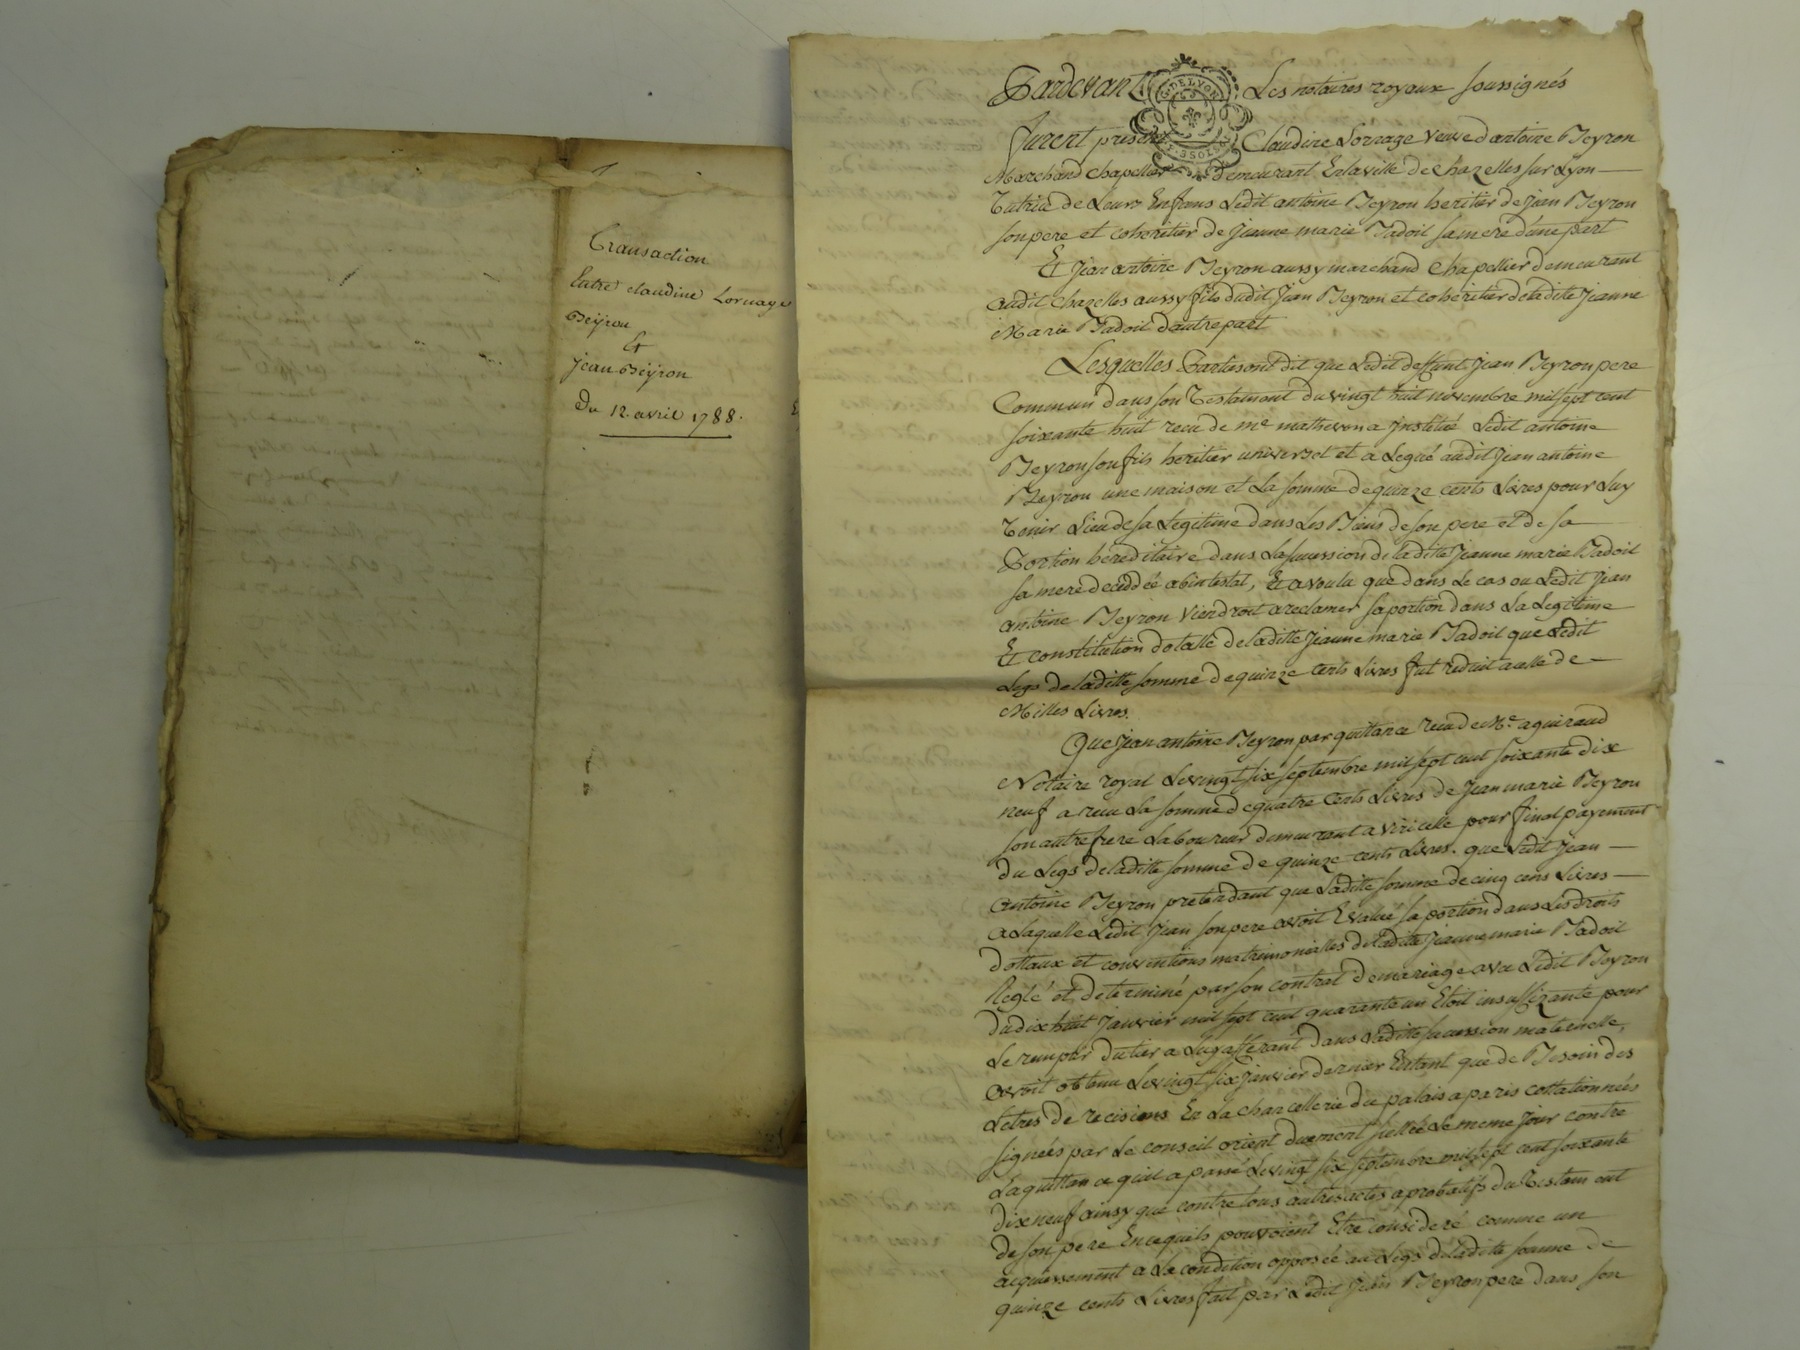 Transaction
Entre claudine Lornage
Beÿron
Et
Jean Beÿron
Du 12. avril 1788.
Pardevant Les notaires royaux soussignés
G. DE LYON
furent presents Claudine Lornage veuve d'antoine Beyron
Marchand chapellier demeurant En la ville de chazelles sur Lyon
Tutrice de Leurs Enfans Ledit antoine Beyron heritier de jean Beyron
son pere et coheritier de jeanne marie Badoil sa mere d'une part
Et jean antoine Beyron aussy marchand chapellier demeurant
audit chazelles aussy fils dudit jean Beyron et coheritier de ladite jeanne
Marie Badoil d'autre part
Lesquelles Parties ont dit que Ledit deffunt jean Beyron pere
Commun dans son Testament du vingt huit novembre mil sept cent
soixante huit recu de me mathevon a jnstitué Ledit antoine
Beyron son fils heritier universel et a Legué audit jean antoine
Beyron une maison et La somme de quinze cents Livres pour Luy
tenir Lieu de sa Legitime dans Les Biens de son pere et de sa
Portion hereditaire dans La succession de ladite jeanne marie Badoil
sa mere decedée abintestat, Et a voulu que dans Le cas ou Ledit jean
antoine Beyron viendroit a reclamer sa portion dans La Legitime
Et constitution dotalle de laditte jeanne marie Badoil que Ledit
Legs de laditte somme de quinze cents Livres fut reduit a celle de
Milles Livres.
Que jean antoine Beyron par quittance recu de Me aguiraud
Notaire royal Le vingt six septembre mil sept cent soixante dix
neuf a recu La somme de quatre cents Livres de jean marie Beyron
son autre frere Laboureur demeurant a viricelle pour final payement
du Legs de laditte somme de quinze cents Livres. que Ledit jean
antoine Beyron pretendant que Laditte somme de cinq cens Livres
a Laquelle Ledit jean son pere avoit Evalué sa portion dans Les droits
dottaux et conventions matrimonialles de ladite jeanne marie Badoil
Reglé et determiné par son contrat de mariage avec Ledit Beyron
du dix huit janvier mil sept cent quarante un Etoit insuffizante pour
Le remplir du tier a Luy afférant dans Laditte succession maternelle,
avoit obtenu Le vingt six janvier dernier Entant que de Besoin des
Lettres de recisions En La chancellerie du palais a paris collationnées
signées par Le conseil orient duement scellée Le meme jour contre
La quittance qu'il a passé Le vingt six septembre mil sept cent soixante
dix neuf ainsy que contre tous autres actes aprobatifs du Testament
de son pere En ce quils pouvoient Etre consideré comme un
acquiessement a La condition opposée au Legs de ladite somme de
quinze cents Livres fait par Ledit jean Beyron pere dans son